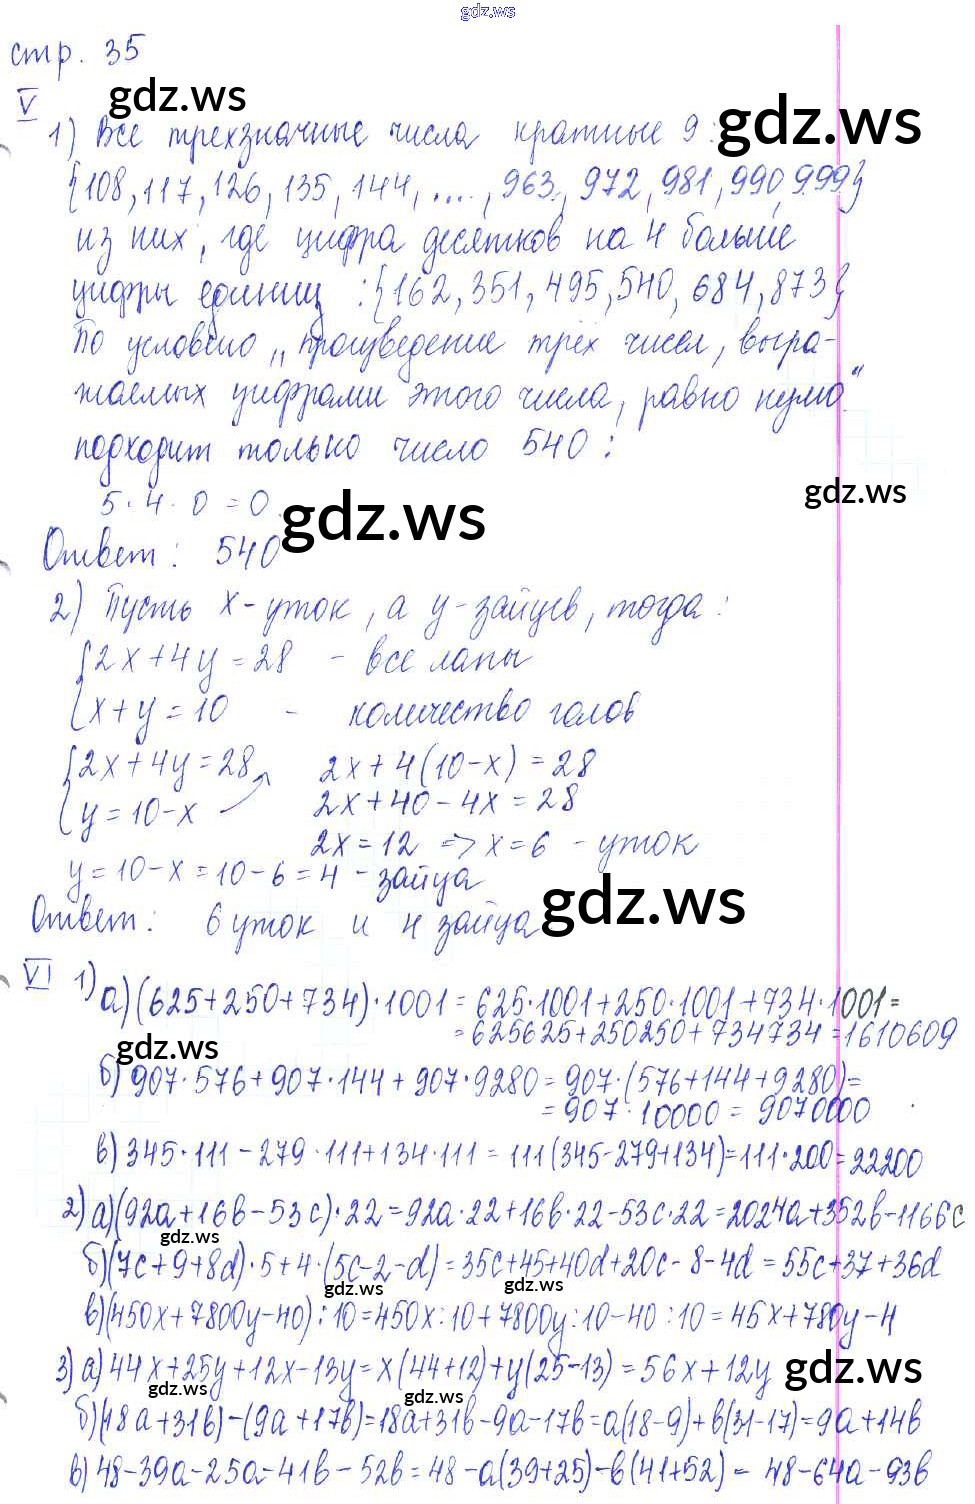 gdz.ws
стр. 35
V
gdz.ws
1) Все трехзначные числа кратные 9:
gdz.ws
{108, 117, 126, 135, 144, ...., 963, 972, 981, 990, 999}
из них, где цифра десятков на 4 больше
цифры единиц: {162, 351, 495, 540, 684, 873}
По условию „произведение трёх чисел, выра-
жаемых цифрами этого числа, равно нулю"
подходит только число 540:
5 · 4 · 0 = 0
gdz.ws
gdz.ws
Ответ: 540
2) Пусть x - уток, а y - зайцев, тогда:
{2x + 4y = 28 - все лапы
{x + y = 10 - количество голов
{2x + 4y = 28 2x + 4(10 - x) = 28
{y = 10 - x 2x + 40 - 4x = 28
2x = 12 => x = 6 - уток
y = 10 - x = 10 - 6 = 4 - зайца
gdz.ws
Ответ: 6 уток и 4 зайца
VI 1) а) (625 + 250 + 734) · 1001 = 625 · 1001 + 250 · 1001 + 734 · 1001 =
= 625625 + 250250 + 734734 = 1610609
gdz.ws
б) 907 · 576 + 907 · 144 + 907 · 9280 = 907 · (576 + 144 + 9280) =
= 907 · 10000 = 9070000
в) 345 · 111 - 279 · 111 + 134 · 111 = 111(345 - 279 + 134) = 111 · 200 = 22200
2) а) (92a + 16b - 53c) · 22 = 92a · 22 + 16b · 22 - 53c · 22 = 2024a + 352b - 1166c
gdz.ws
б) (7c + 9 + 8d) · 5 + 4 · (5c - 2 - d) = 35c + 45 + 40d + 20c - 8 - 4d = 55c + 37 + 36d
gdz.ws
gdz.ws
в) (450x + 7800y - 40) : 10 = 450x : 10 + 7800y : 10 - 40 : 10 = 45x + 780y - 4
3) а) 44x + 25y + 12x - 13y = x(44 + 12) + y(25 - 13) = 56x + 12y
gdz.ws
gdz.ws
gdz.ws
б) (18a + 31b) - (9a + 17b) = 18a + 31b - 9a - 17b = a(18 - 9) + b(31 - 17) = 9a + 14b
в) 48 - 39a - 25a - 41b - 52b = 48 - a(39 + 25) - b(41 + 52) = 48 - 64a - 93b